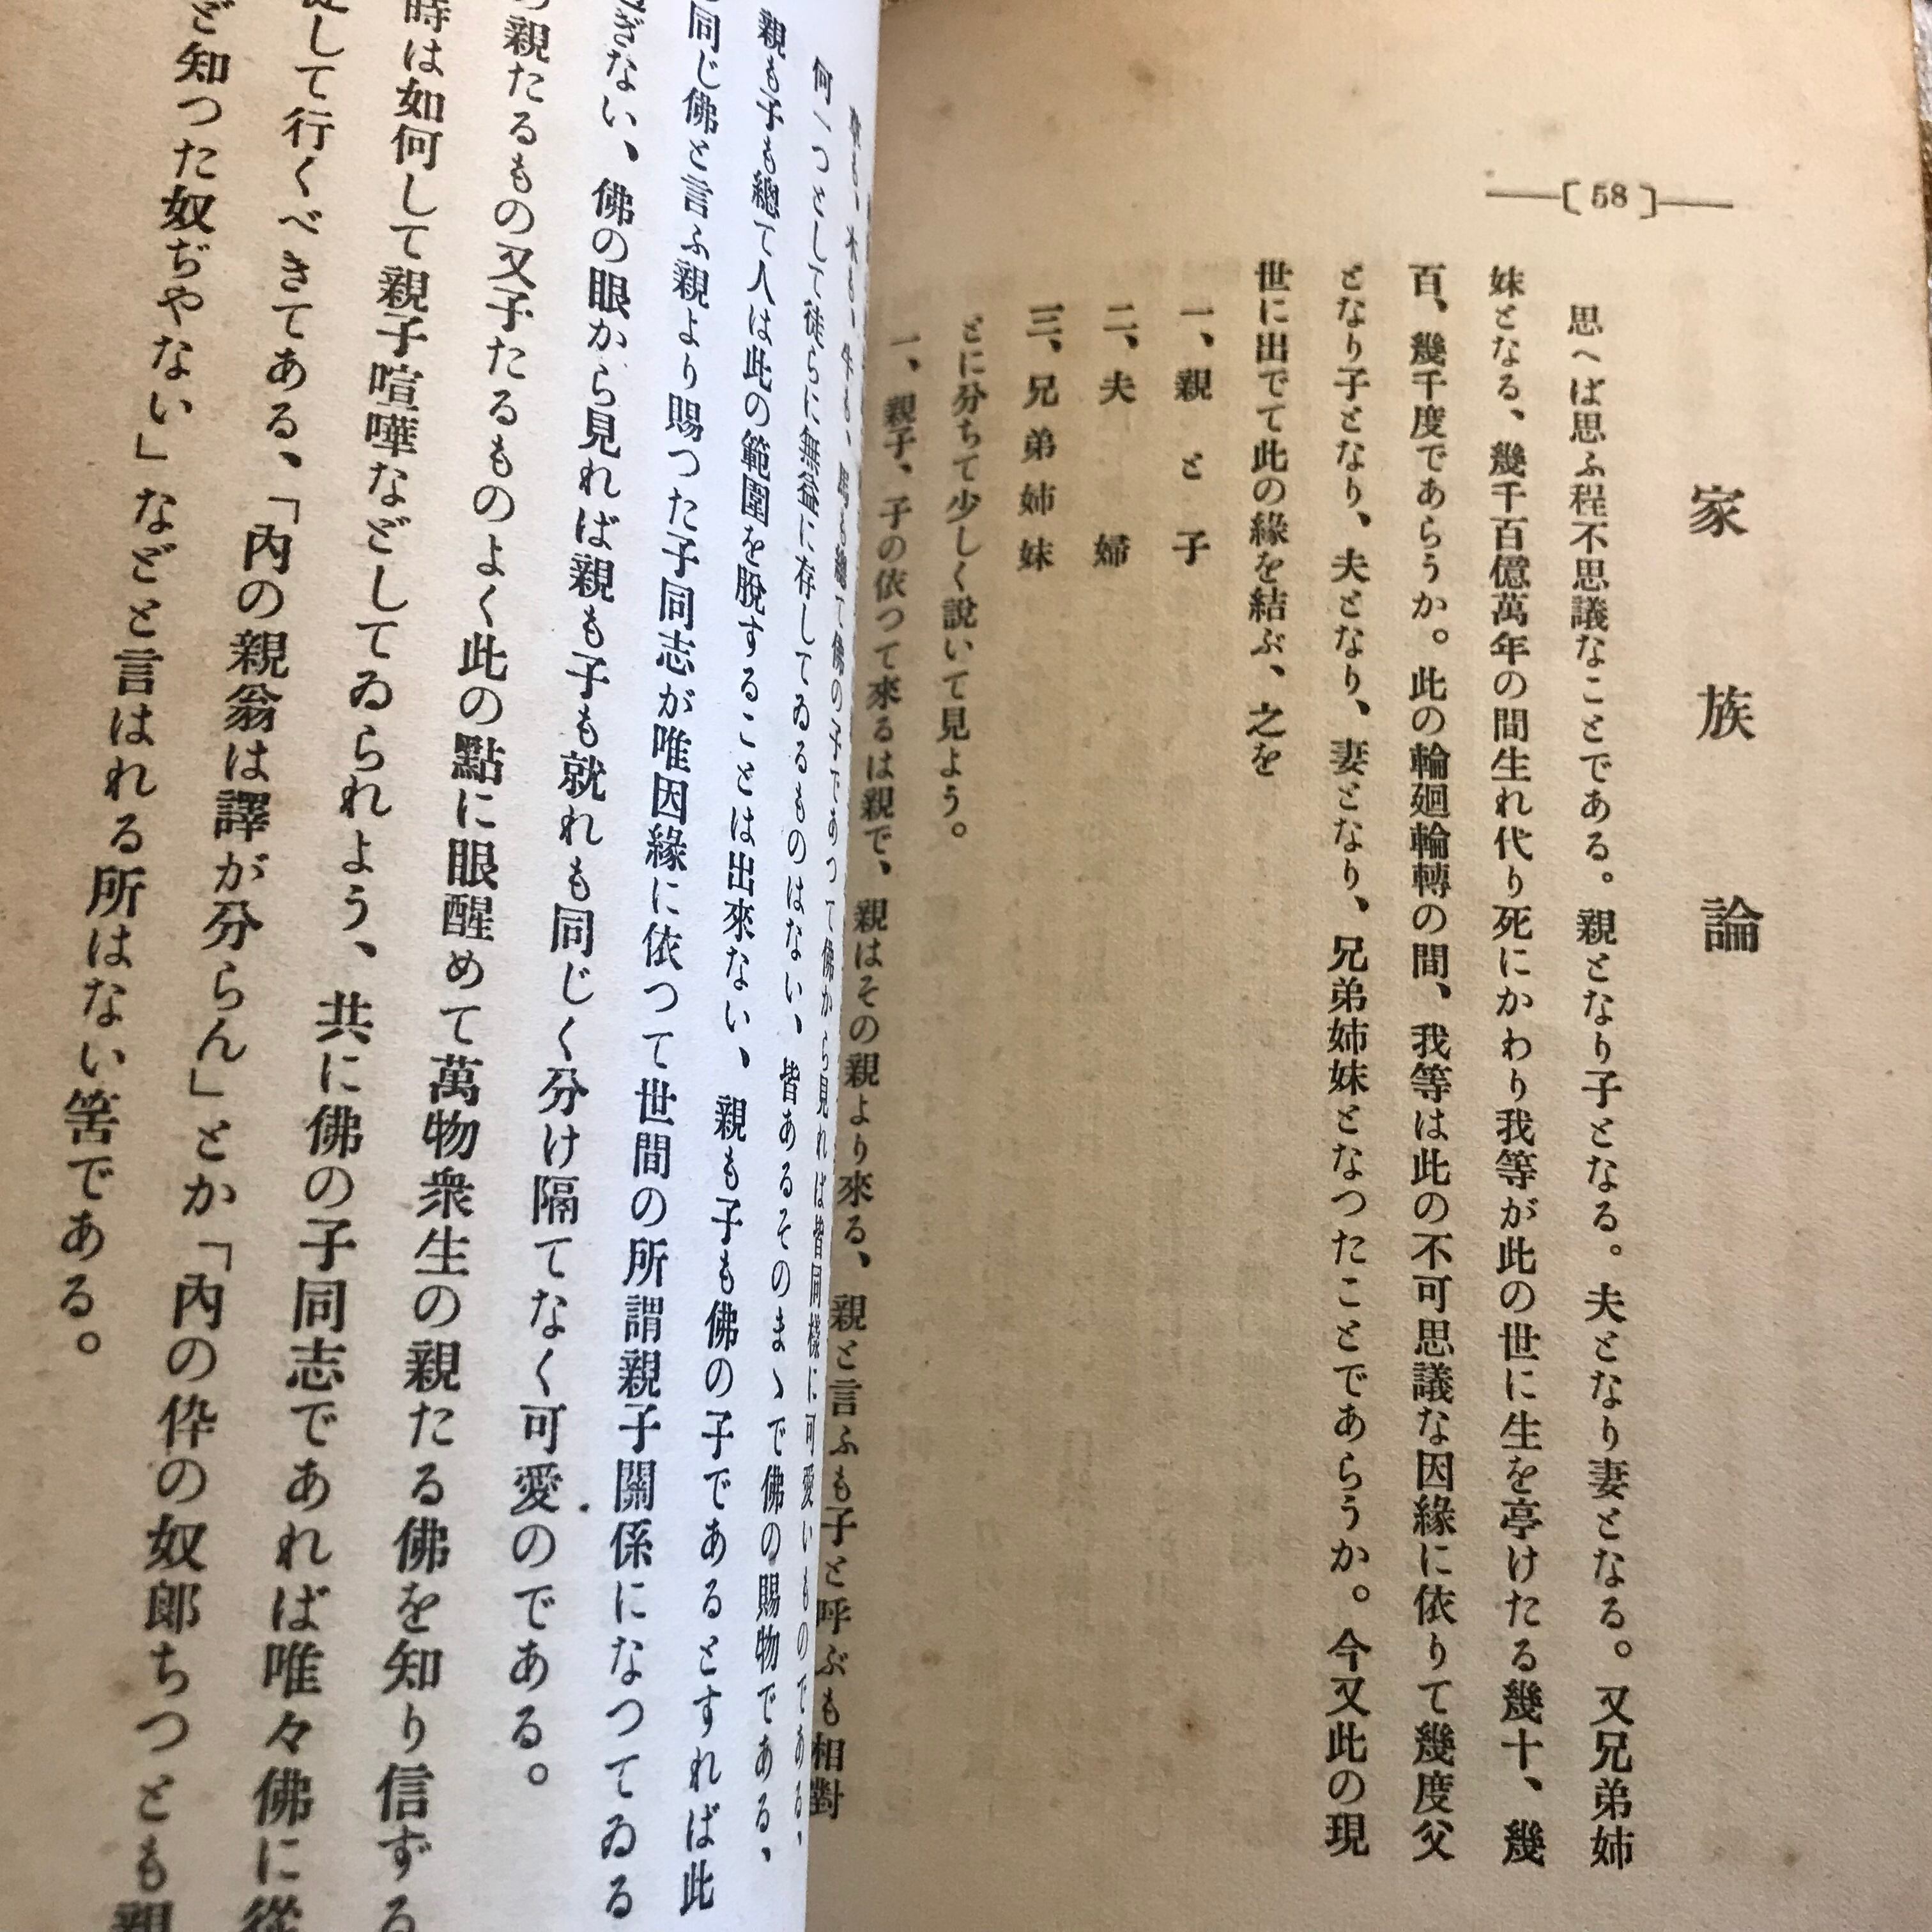 〔58〕
家族論
思へば思ふ程不思議なことである。親となり子となる。夫となり妻となる。又兄弟姉
妹となる、幾千百億萬年の間生れ代り死にかわり我等が此の世に生を享けたる幾十、幾
百、幾千度であらうか。此の輪廻輪轉の間、我等は此の不可思議な因緣に依りて幾度父
となり子となり、夫となり、妻となり、兄弟姉妹となつたことであらうか。今又此の現
世に出でて此の緣を結ぶ、之を
一、親と子
二、夫婦
三、兄弟姉妹
とに分ちて少しく說いて見よう。
一、親子、子の依つて來るは親で、親はその親より來る、親と言ふも子と呼ぶも相對
木も、牛も、馬も總て佛の子であつて佛から見れば皆同樣に可愛いものである、
何一つとして徒らに無益に存してゐるものはない、皆あるそのまゝで佛の賜物である、
親も子も總て人は此の範圍を脫することは出來ない、親も子も佛の子であるとすれば此
同じ佛と言ふ親より賜つた子同志が唯因緣に依つて世間の所謂親子關係になつてゐる
ぎない、佛の眼から見れば親も子も就れも同じく分け隔てなく可愛のである。
親たるもの又子たるものよく此の點に眼醒めて萬物衆生の親たる佛を知り信ずる
時は如何して親子喧嘩などしてゐられよう、共に佛の子同志であれば唯々佛に從
して行くべきてある、「內の親翁は譯が分らん」とか「內の伜の奴郎ちつとも親
ど知つた奴ぢやない」などと言はれる所はない筈である。